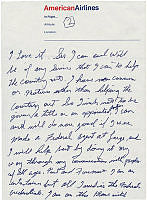 AmericanAirlines
In Flight...
Altitude;
Location;
(2)
I Love it. Sir, I can and will
be of any service that I can to help
the country out. I have no concern
or motives other than helping the
country out. So I wish not to be
given a title or an appointed. I can
and will do more good if I were
made a Federal Agent at Large and
I will help best by doing it my
way through my communications with people
of all ages. First and foremost I am an
entertainer but all I need is the Federal
credentials. I am on this Plane with